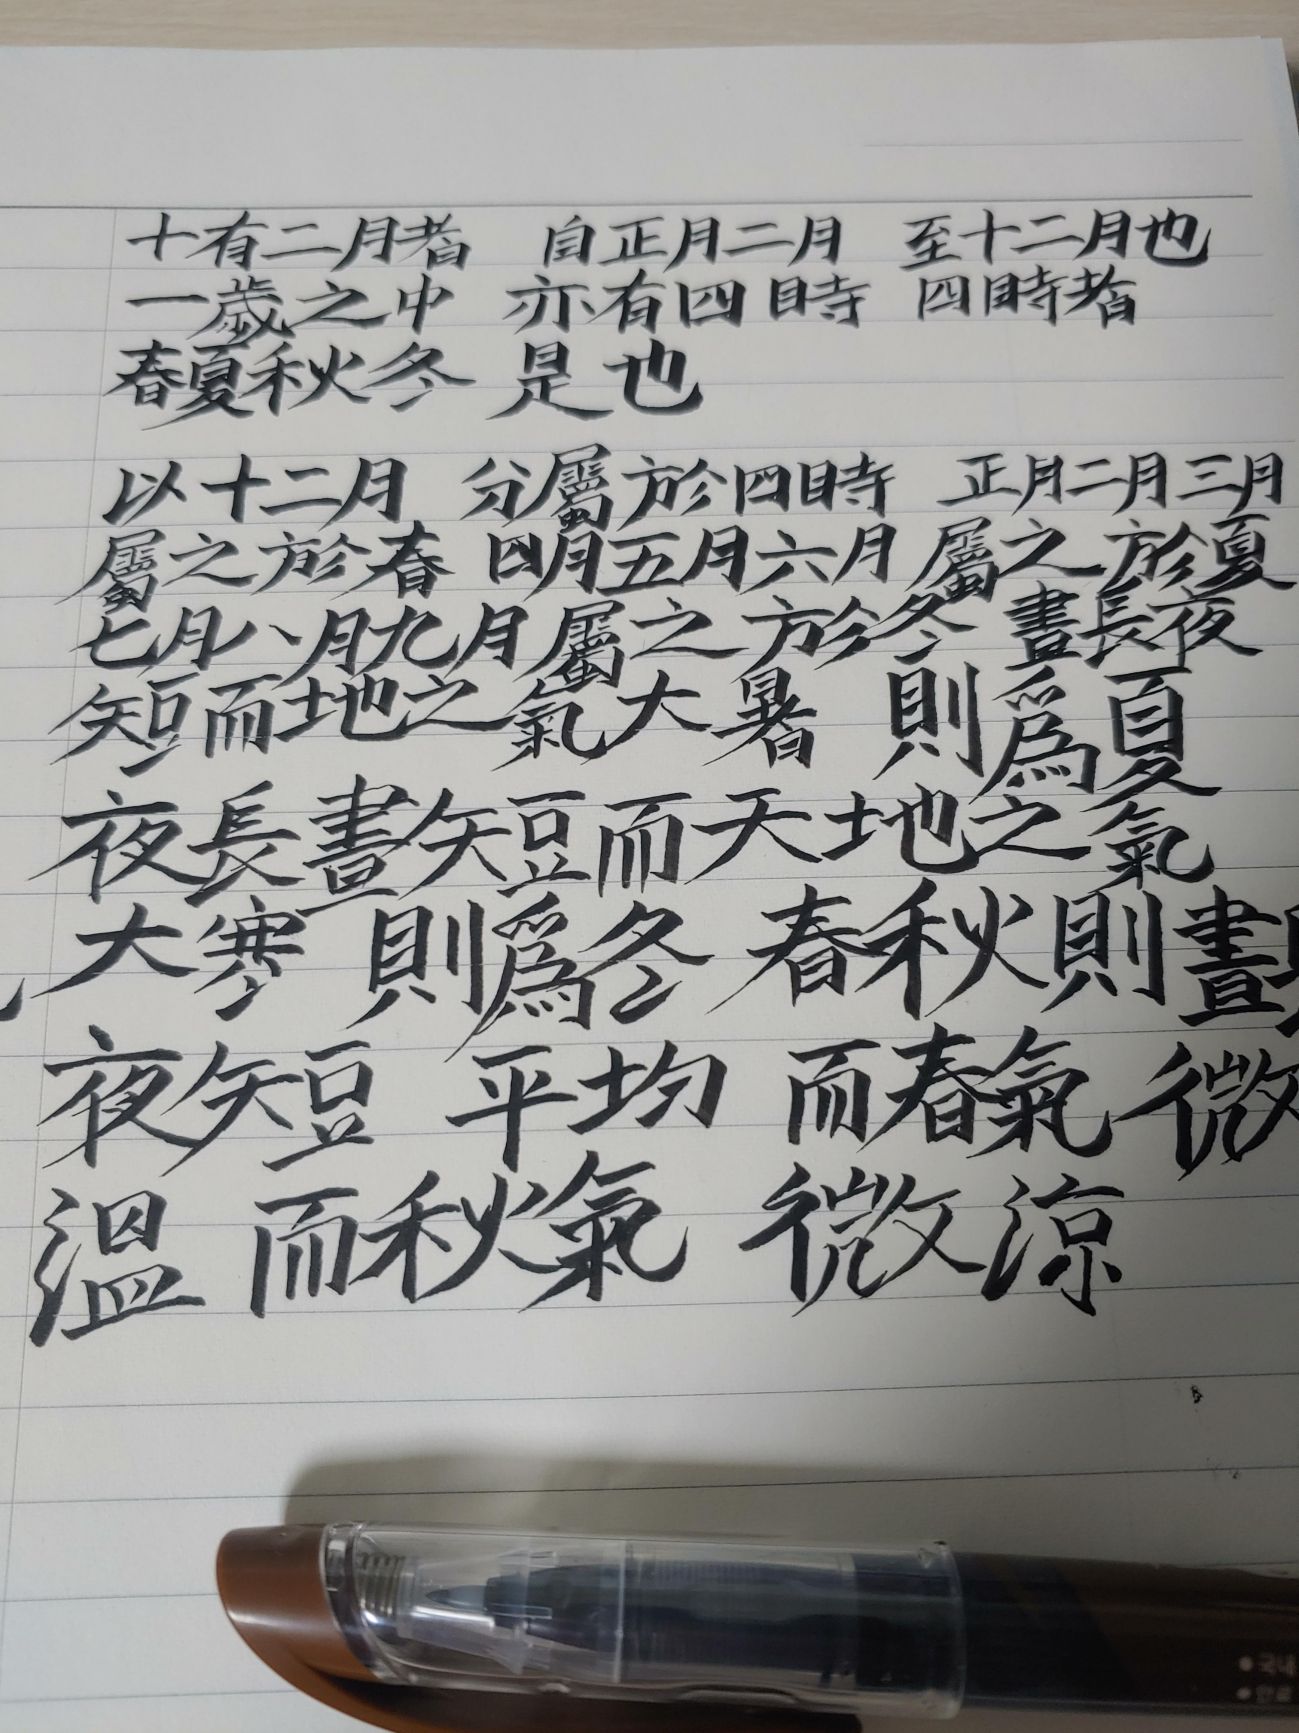 十有二月者 自正月二月 至十二月也
一歲之中 亦有四時 四時者
春夏秋冬 是也
以十二月 分屬於四時 正月二月三月
屬之於春 四月五月六月 屬之於夏
七月八月九月屬之於冬 晝長夜
短而地之氣大暑 則爲夏
夜長晝短而天地之氣
大寒 則爲冬 春秋則晝
夜短 平均 而春氣微
溫 而秋氣 微涼